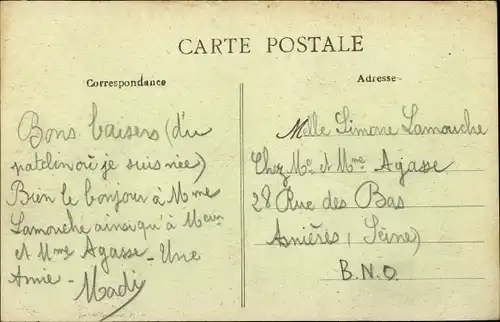 CARTE POSTALE
Correspondance
Bons baisers (d'u
patelin où je suis née)
Bien le bonjour à Mme
Lamouche ainsi qu'à
et Mme Agasse - Une
Amie - Madi
Adresse
Melle Simone Lamouche
Chez Mr et Mme Agasse
28 Rue des Bas
Asnières (Seine)
B.N.O.